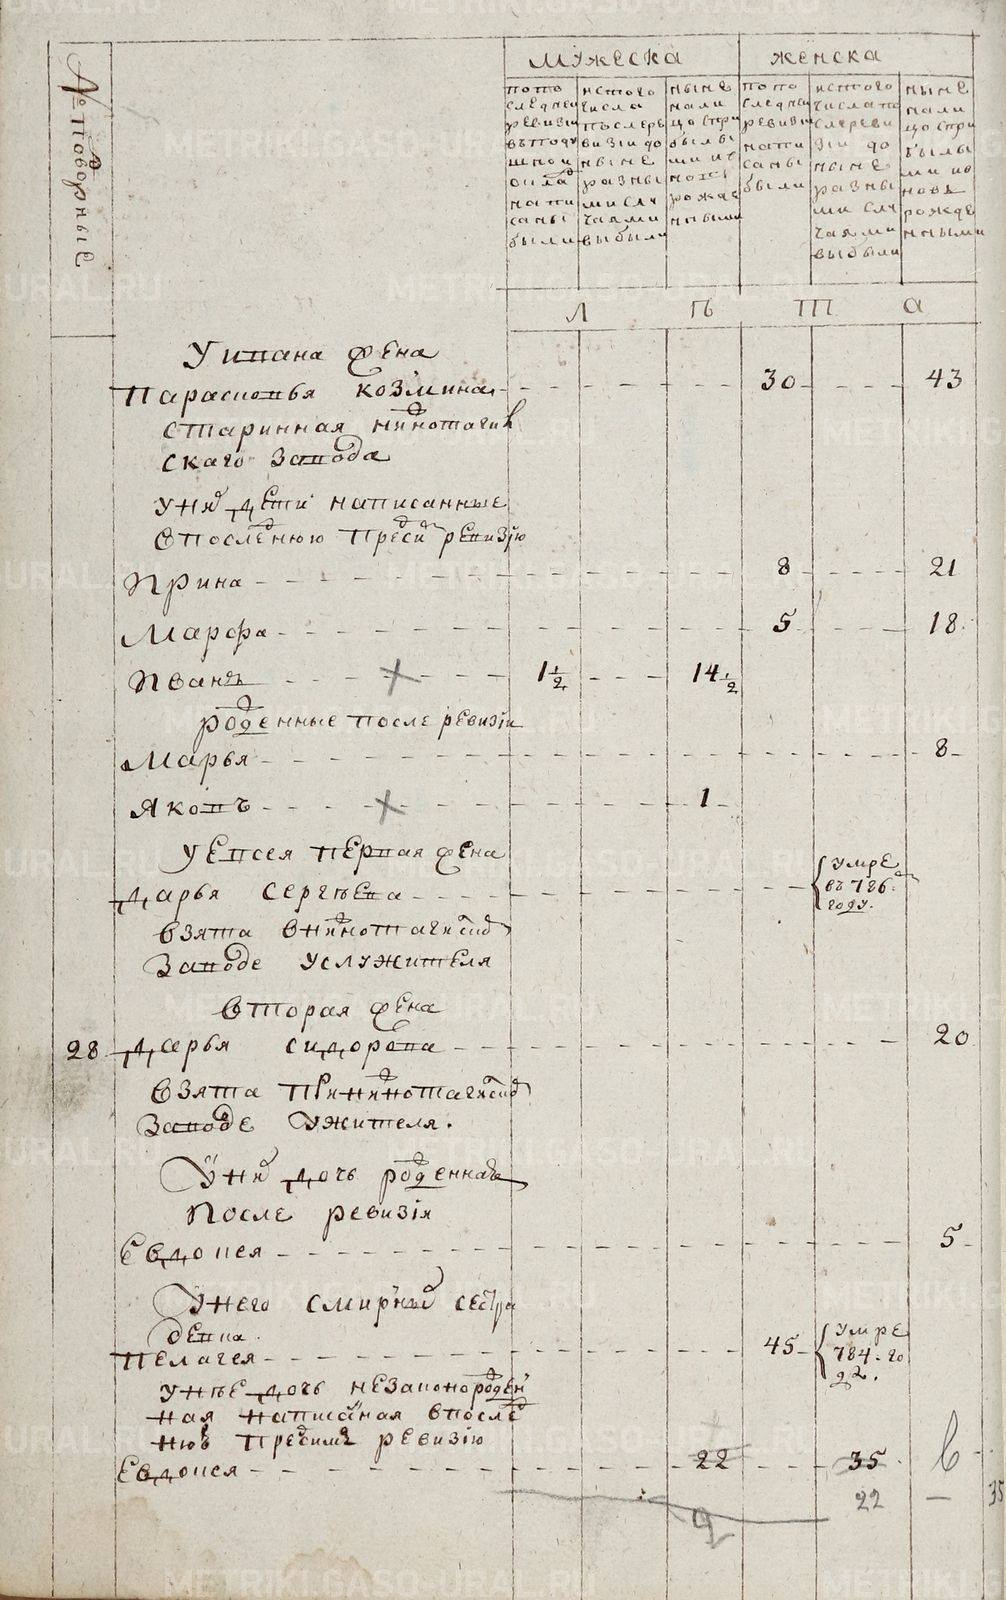 № подворные
мужеска
женска
по по
следней
ревизии
въ поду
шной
окла
на пи
саны
были
ис того
числа
после ре
визии до
ныне
разны
ми слу
чаями
выбыли
ныне
нали
цо с при
былы
ми и
рожде
нными
по по
следней
ревизии
напи
саны
были
ис того
числа по
сле реви
зии до
ныне
разны
ми слу
чаями
выбыли
ныне
нали
цо с при
былы
ми и
новь
рожде
нными
Л П Т А
У ивана жена
Парасковья козмина 30 43
старинная нижнотагил
скаго завода
у них дети написанные
в последнюю пред сим ревизию
Ирина 8 21
Марфа 5 18
Иванъ 1 1/2 14 1/2
рожденные после ревизіи
Марья 8
Яковъ 1
у евсея первая жена
Дарья сергеева умре
въ 786
году.
взята в нижнотагилском
Заводе услужителя
Вторая жена
28 Дарья сидорова 20
взята при нижнотагилском
Заводе ужителя.
У них дочь рожденная
После ревизія
Евдокея 5
У него смирных сестра
девка
Пелагея 45 умре
784. го
ду.
у нее дочь незаконорожден
ная написаная в после
нюю пред сим ревизию
Евдокея 22 35
22 — 35